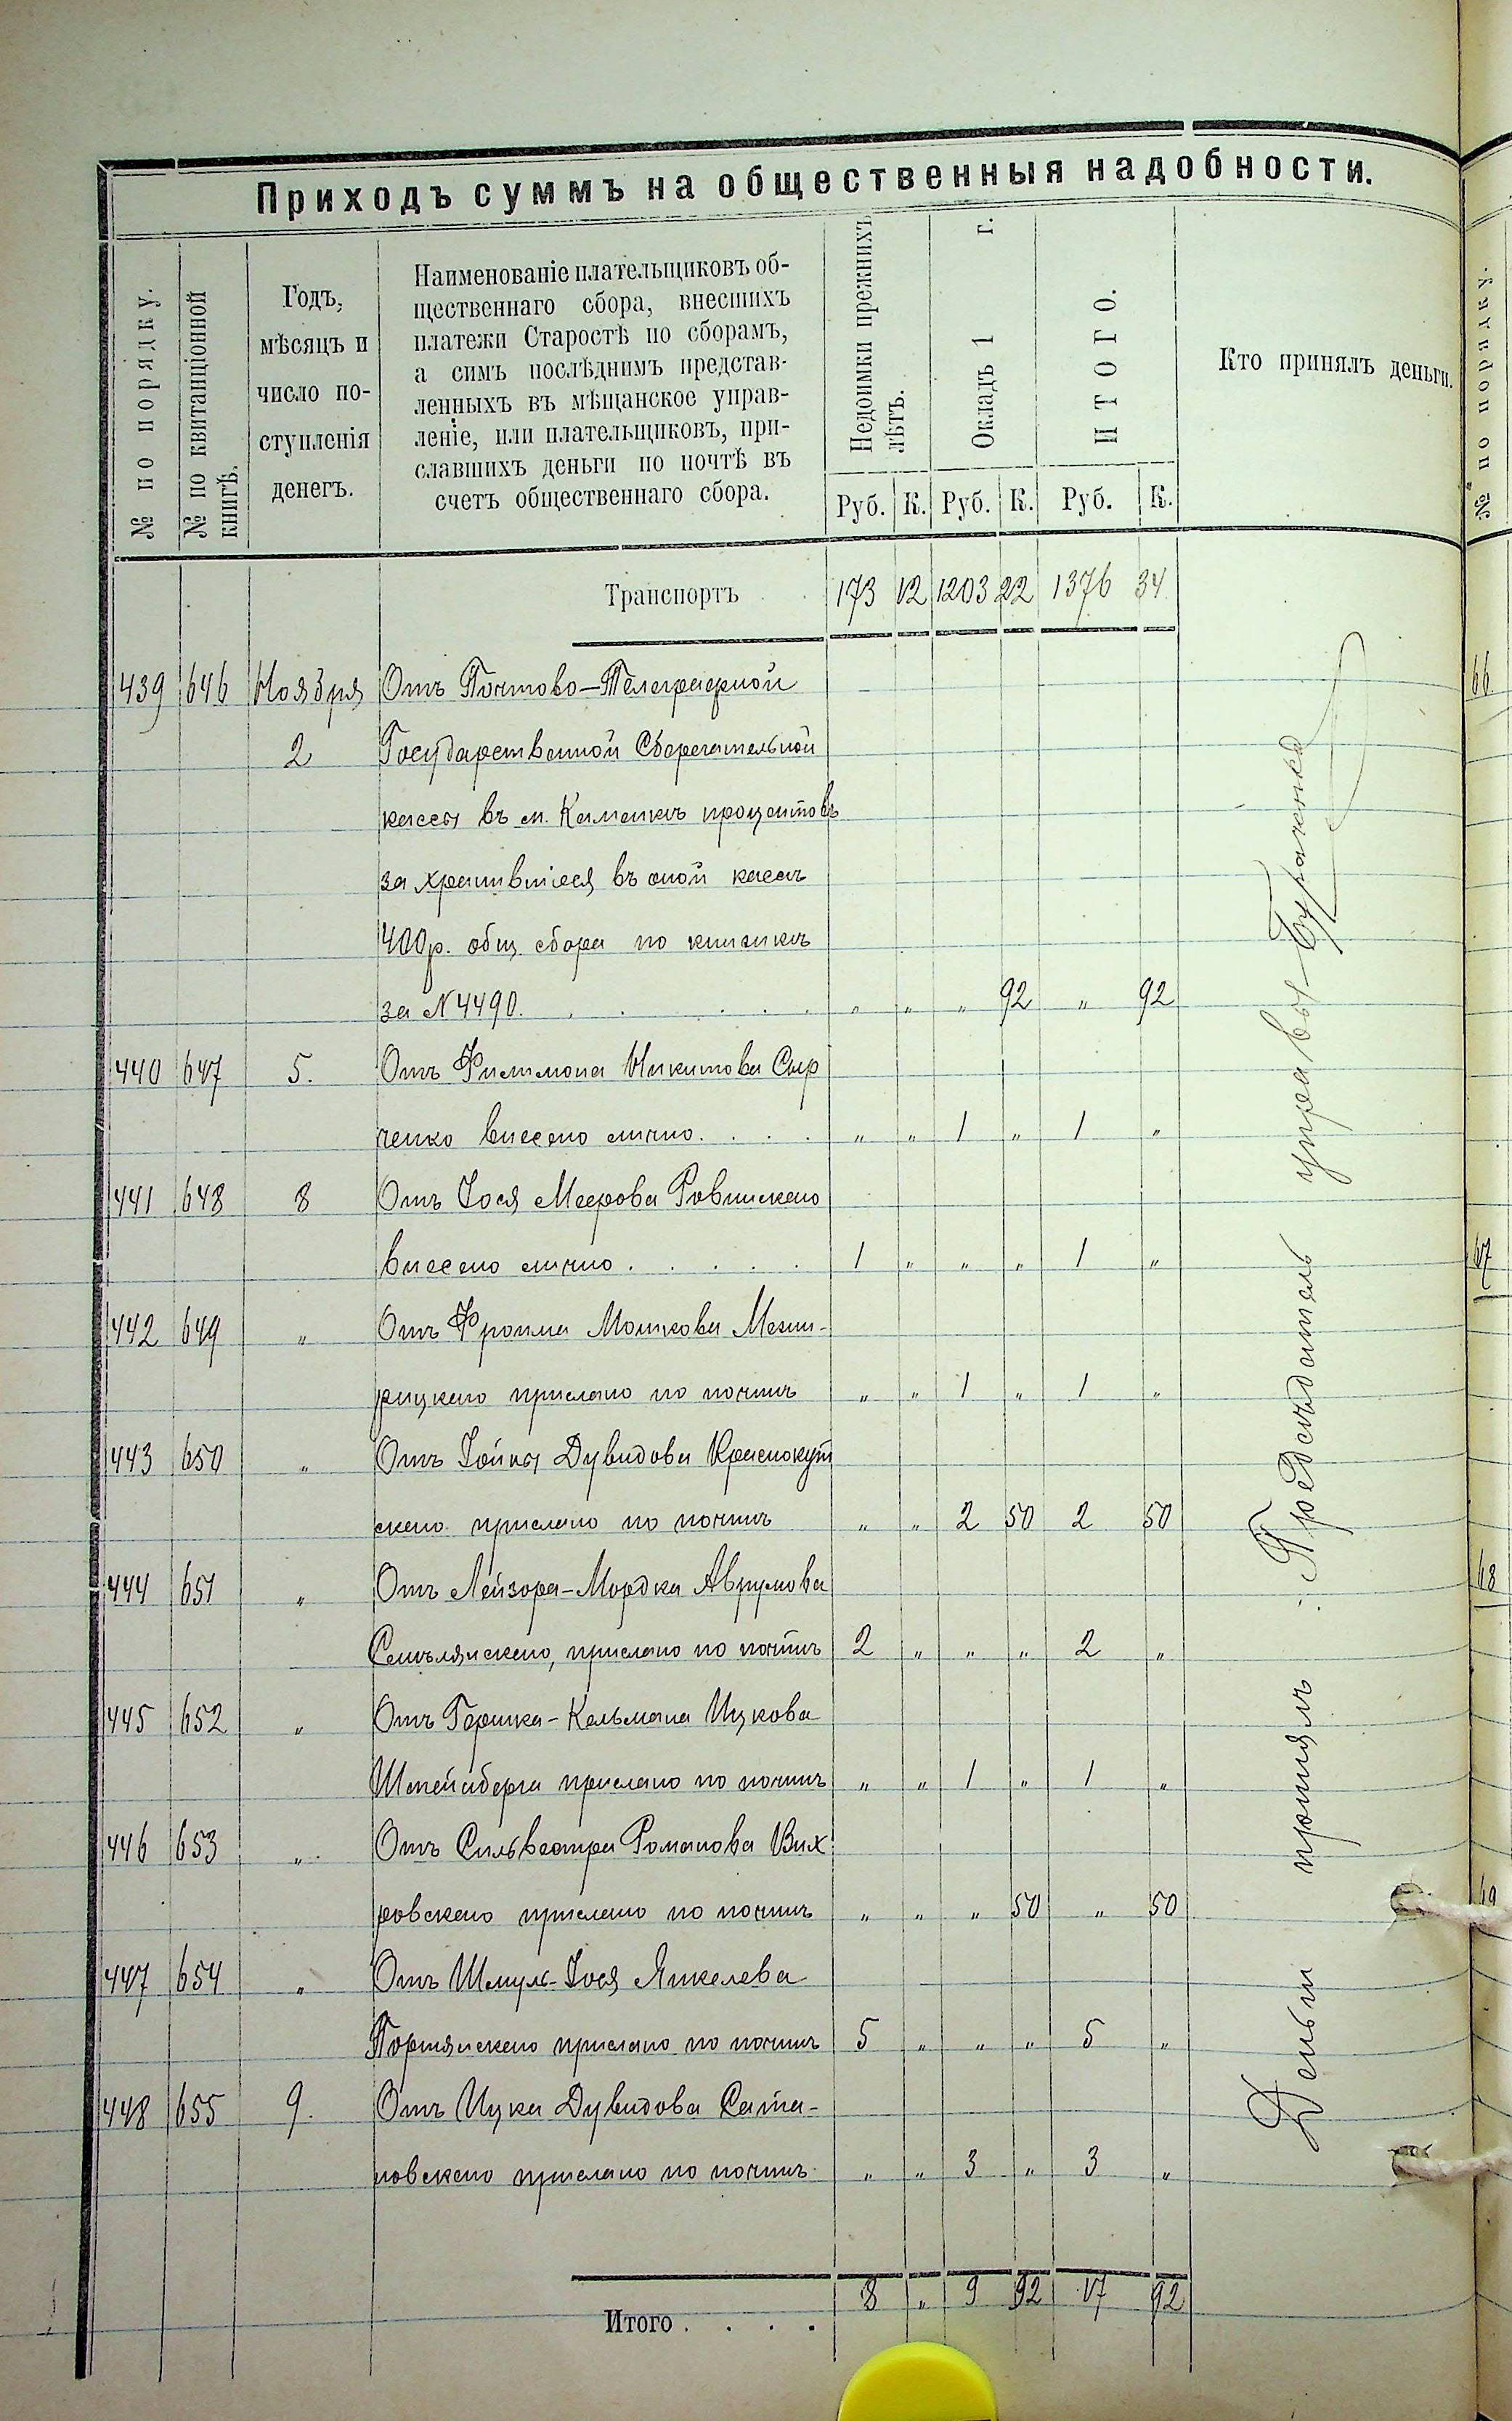 Приходъ суммъ на общественныя надобности.
№ по порядку.
№ по квитанціонной книгѣ.
Годъ, мѣсяцъ и число поступленія денегъ.
Наименованіе плательщиковъ об-
щественнаго сбора, внесшихъ
платежи Старостѣ по сборамъ,
а симъ послѣднимъ представ-
ленныхъ въ мѣщанское управ-
леніе, или плательщиковъ, при-
славшихъ деньги по почтѣ въ
счетъ общественнаго сбора.
Недоимки прежнихъ лѣтъ.
Окладъ 1 г.
ИТОГО.
Кто принялъ деньги.
Руб. К. Руб. К. Руб. К.
Транспортъ 173 12 1203 22 1376 34
439 646 Ноября Отъ Почтово-Телеграфной
2 Государственной Сберегательной
кассы въ м. Каменкѣ процентовъ
за хранившіеся въ оной кассѣ
400р. общ. сбора по книжкѣ
за №4490. „ „ „ 92 „ 92
440 647 5. Отъ Филимона Никитова Сыр
ченко внесено лично. . . . „ „ 1 „ 1 „
441 648 8 Отъ Іося Меерова Ровинскаго
внесено лично . . . . . 1 „ „ „ 1 „
442 649 „ Отъ Фроима Мошкова Межи-
рицкаго прислано по почтѣ „ „ 1 „ 1 „
443 650 „ Отъ Іойны Дувидова Краснокут
скаго прислано по почтѣ „ „ 2 50 2 50
444 651 „ Отъ Лейзора-Мордка Аврумова
Смѣлянскаго, прислано по почтѣ 2 „ „ „ 2 „
445 652 „ Отъ Гершка-Кельмана Ицкова
Штейнберга прислано по почтѣ „ „ 1 „ 1 „
446 653 „ Отъ Сильвестра Романова Вих
ровскаго прислано по почтѣ „ „ „ 50 „ 50
447 654 „ Отъ Шмуль-Іося Янкелева
Портянскаго прислано по почтѣ 5 „ „ „ 5 „
448 655 9. Отъ Ицка Дувидова Сата-
новскаго прислано по почтѣ „ „ 3 „ 3 „
Итого . . . . 8 „ 9 92 17 92
Деньги принялъ: Предсѣдатель управы
№ по порядку.
66
67
68
69